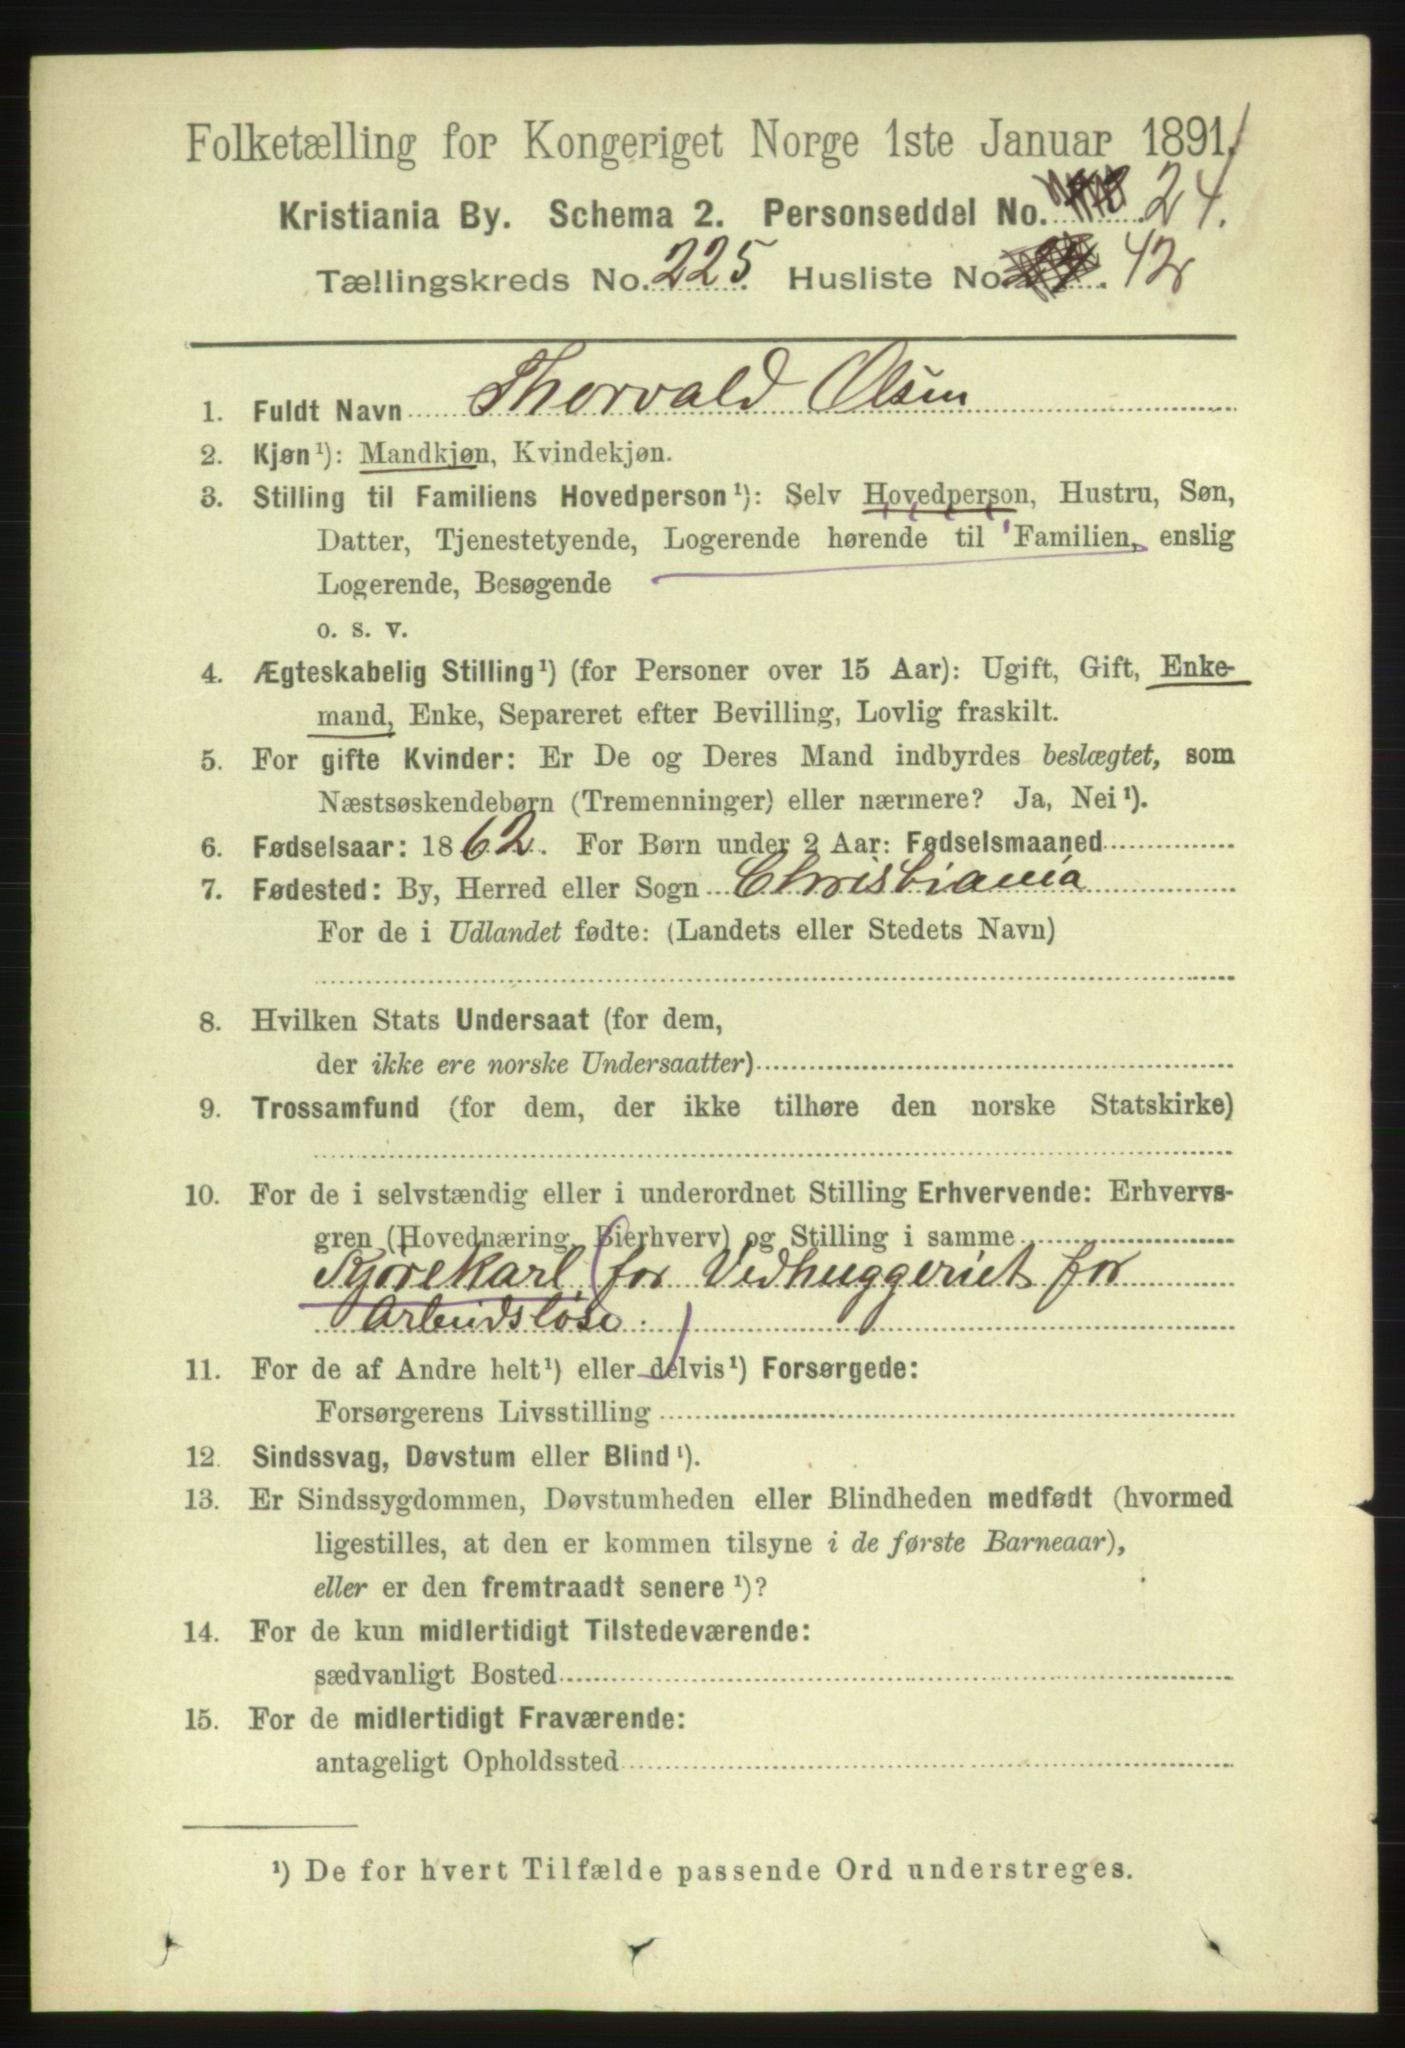 Folketælling for Kongeriget Norge 1ste Januar 1891.
Kristiania By. Schema 2. Personseddel No. 24.
Tællingskreds No. 225. Husliste No. 42
1. Fuldt Navn Thorvald Olsen
2. Kjøn¹): Mandkjøn, Kvindekjøn.
3. Stilling til Familiens Hovedperson¹): Selv Hovedperson, Hustru, Søn,
Datter, Tjenestetyende, Logerende hørende til Familien, enslig
Logerende, Besøgende
o. s. v.
4. Ægteskabelig Stilling¹) (for Personer over 15 Aar): Ugift, Gift, Enke-
mand, Enke, Separeret efter Bevilling, Lovlig fraskilt.
5. For gifte Kvinder: Er De og Deres Mand indbyrdes beslægtet, som
Næstsøskendebørn (Tremenninger) eller nærmere? Ja, Nei¹).
6. Fødselsaar: 1862. For Børn under 2 Aar: Fødselsmaaned
7. Fødested: By, Herred eller Sogn Christiania
For de i Udlandet fødte: (Landets eller Stedets Navn)
8. Hvilken Stats Undersaat (for dem,
der ikke ere norske Undersaatter)
9. Trossamfund (for dem, der ikke tilhøre den norske Statskirke)
10. For de i selvstændig eller i underordnet Stilling Erhvervende: Erhvervs-
gren (Hovednæring, Bierhverv) og Stilling i samme
Kjørekarl (for Vedhuggeriet for
Arbeidsløse.)
11. For de af Andre helt¹) eller delvis¹) Forsørgede:
Forsørgerens Livsstilling
12. Sindssvag, Døvstum eller Blind¹).
13. Er Sindssygdommen, Døvstumheden eller Blindheden medfødt (hvormed
ligestilles, at den er kommen tilsyne i de første Barneaar),
eller er den fremtraadt senere¹)?
14. For de kun midlertidigt Tilstedeværende:
sædvanligt Bosted
15. For de midlertidigt Fraværende:
antageligt Opholdssted
¹) De for hvert Tilfælde passende Ord understreges.